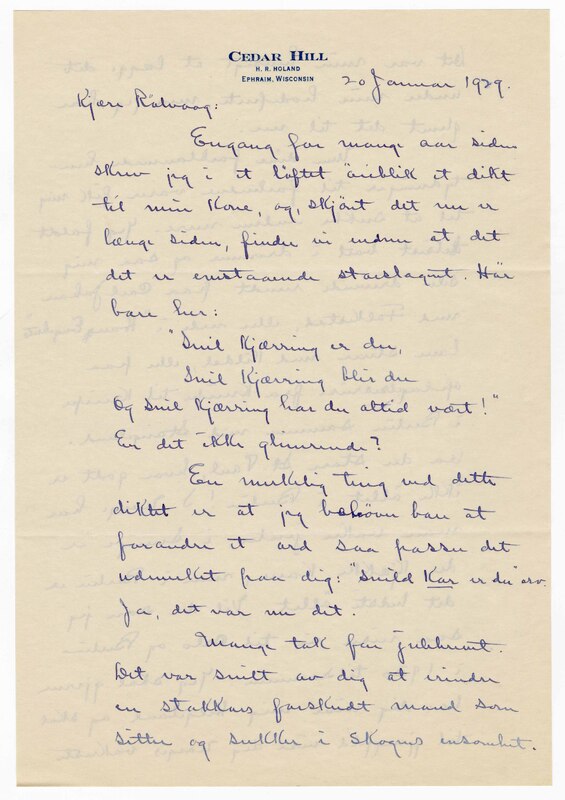 CEDAR HILL
H. R. HOLAND
EPHRAIM, WISCONSIN
20 Januar 1929.
Kjære Rölvaag:
Engang for mange aar siden
skrev jeg i et löftet öieblik et dikt
til min Kone, og, skjönt det nu er
længe siden, finder vi endnu at det
det er enestaaende storslagent. Hör
bare her:
"Snil Kjærring er du,
Snil Kjærring blir du
Og snil Kjærring har du altid vært!"
Er det ikke glimrende?
En merkelig ting ved dette
diktet er at jeg behöver bare at
forandre et ord saa passer det
udmerket paa dig: "Snild Kar er du" osv.
Ja, det var nu det.
Mange tak for julehemt.
Det var snilt av dig at erindre
en stakkars forskudt mand som
sitter og sukker i Skogens ensomhet.